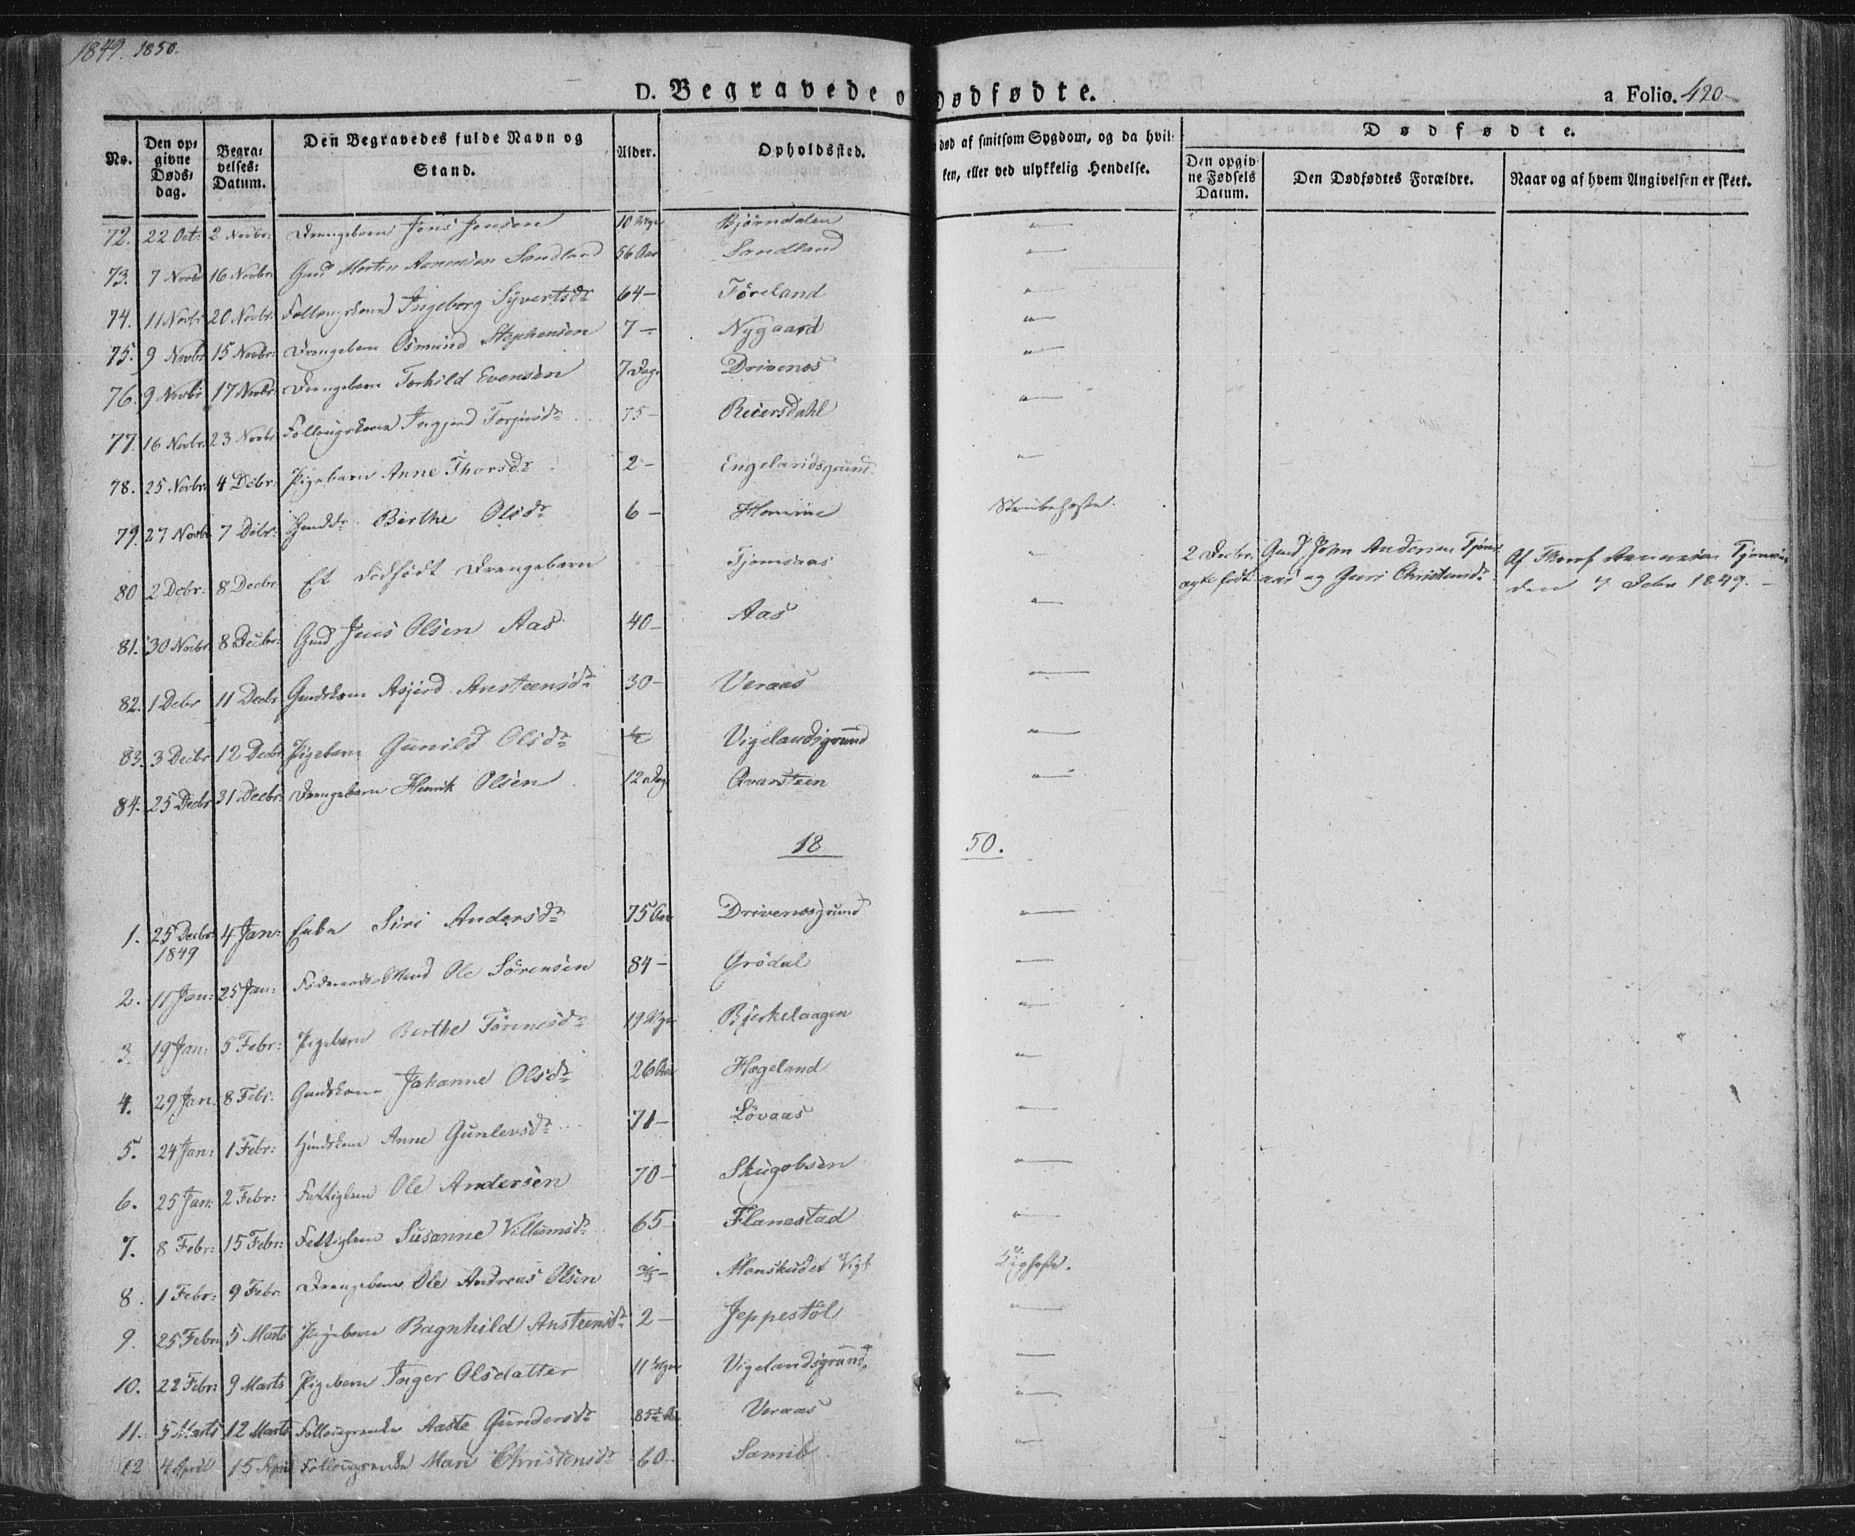 1849. 1850.
D. Begravede o Dødfødte. a Folio. 420
No. Den opgivne Dødsdag. Begravelses-Datum. Den Begravedes fulde Navn og Stand. Alder. Opholdssted. død af smitsom Sygdom, og da hvilken, eller ved ulykkelig Hendelse. Dødfødte.
Den opgivne Fødsels Datum. Den Dødfødtes Forældre. Naar og af hvem Angivelsen er skeet.
72. 22 Oct: 2 Novbr: Drengebarn Jens Jensen 10 Uger Bjørndalen "
73. 7 Novbr 16 Novbr: Gmd Morten Aanensen Sandland 56 Aar Sandland "
74. 11 Novbr 20 Novbr: Ingeborg Syvertsdr 64 – Føreland "
75. 9 Novbr 15 Novbr: Drengebarn Osmund Stephensen 7 – Nygaard "
76. 9 Novbr 17 Novbr: Drengebarn Torkild Evensen 7 Dage Drivenes "
77. 16 Novbr: 23 Novbr Ingjerd Torjusdr 75 – Reiersdahl "
78. 25 Novbr 4 Dcbr: Pigebarn Anne Thorsdr 2 – Engelandsgrund "
79. 27 Novbr 7 Dcbr: Berthe Olsdr 6 – Homme Strubehoste.
80 2 Dcbr: 8 Decbr: Et dødfødt Drengebarn Tjomsaas " 2 Decbr: Gmd John Andersen Tjomsaas og Guri Christensdr Af
den 7 Debr 1849. –
81. 30 Novbr 8 Decbr: Gmd Jens Olsen Aas 40 – Aas "
82. 1 Debr 11 Decbr Gmdskone Asjerd Ansteensdr 30 – Veraas "
83. 3 Decbr 12 Decbr Pigebarn Gunild Olsdr Vigelandsgrund "
84. 25 Decbr 31 Decbr: Drengebarn Henrik Olsen 12 Dage Qvarsteen "
18 50.
1. 25 Decbr: 1849 4 Jan: Enke Siri Andersdr 75 Aar Drivenesgrund "
2. 11 Jan: 25 Jan: Føderaads-Mand Ole Sørensen 84 – Grødal "
3. 19 Jan: 5 Febr: Pigebarn Berthe Tørresdr 19 Uger Bjerkelaagen "
4. 29 Jan: 8 Febr: Gmdskone Johanne Olsdr 26 Aar Hægeland "
5. 24 Jan: 1 Febr: Anne Gunlevsdr 71 – Løvaas "
6. 25 Jan: 2 Febr: Fattiglem Ole Andersen 70 – "
7. 8 Febr: 15 Febr: Fattiglem Susanne Villumsdr 65 – Flanestad "
8. 1 Febr: 9 Febr: Drengebarn Ole Andreas Olsen Monskudet Vigl Kighoste.
9. 25 Febr: 5 Marts Pigebarn Ragnhild Ansteensdr 2 – Jeppestøl "
10. 22 Febr: 9 Marts Pigebarn Inger Olsdatter 11 Uger Vigelandsgrund "
11. 5 Marts 12 Marts Aaste Gundersdr Veraas "
12 4 April 15 April Mari Christensdr 60 – "